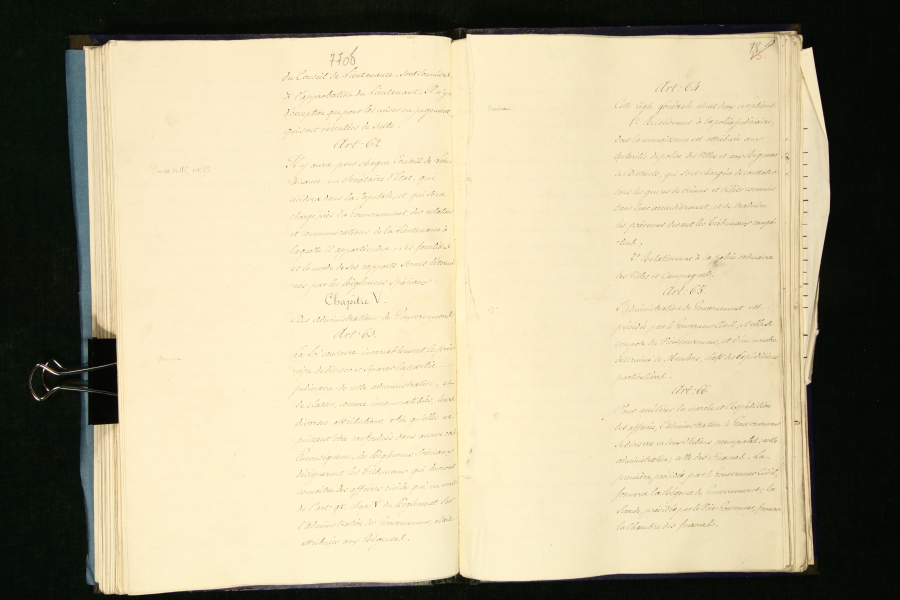 770b
du Conseil de Lieutenance, sont soumises
à l'approbation du Lieutenant. Il n'y a
d'exception que pour les mises en payement,
qui sont exécutées de suite.
Art: 62
Il y aura, pour chaque Conseil de Lieu-
tenance, un Secrétaire d'Etat, qui
résidera dans la Capitale, et qui sera
chargé près le Gouvernement des relations
et communications de la Lieutenance à
laquelle il appartiendra; ses fonctions
et le mode de ses rapports seront détermi-
nés par les Règlemens Spéciaux.
Chapitre V.
Des Administrations de Gouvernement
Art: 63
La loi conserve invariablement le prin-
cipe de diviser et séparer la partie
judiciaire de celle administrative, et
de classer, comme incompatibles, leurs
diverses attributions, afin qu'elles ne
puissent être confondues dans aucun cas.
Conséquemment, les Règlemens Spéciaux
désigneront les Tribunaux qui devront
connaître des affaires civiles qui, en vertu
de l'art: 95, chap: V du Règlement
l'administration des Gouvernemens était
attribuées aux
78
Art: 64
Cette règle générale admet deux exceptions
1° Relativement à la police judiciaire,
dont la connaissance est attribuée aux
autorités de police des Villes et aux Seigneurs
de Districts, qui sont chargés de constater
tous les genres de crimes et délits commis
dans leur arrondissement, et de traduire
les prévenus devant les Tribunaux compé-
tens;
2° Relativement à la police ordinaire
des Villes et Campagnes.
Art: 65
L'administration de Gouvernement est
présidée par le Gouverneur Civil, et elle se
compose du Vice-Gouverneur, et d'un nombre
déterminé de Membres, chefs des Expéditions
particulières.
Art: 66
Pour accélérer la marche et l'expédition
des affaires, l'administration de Gouvernement
se divise en deux Sections principales, celle
administrative, celle des finances. La
première, présidée par le Gouverneur Civil,
formera la Régence de Gouvernement; la
seconde, présidée par le Vice-Gouverneur, formera
la Chambre des finances.